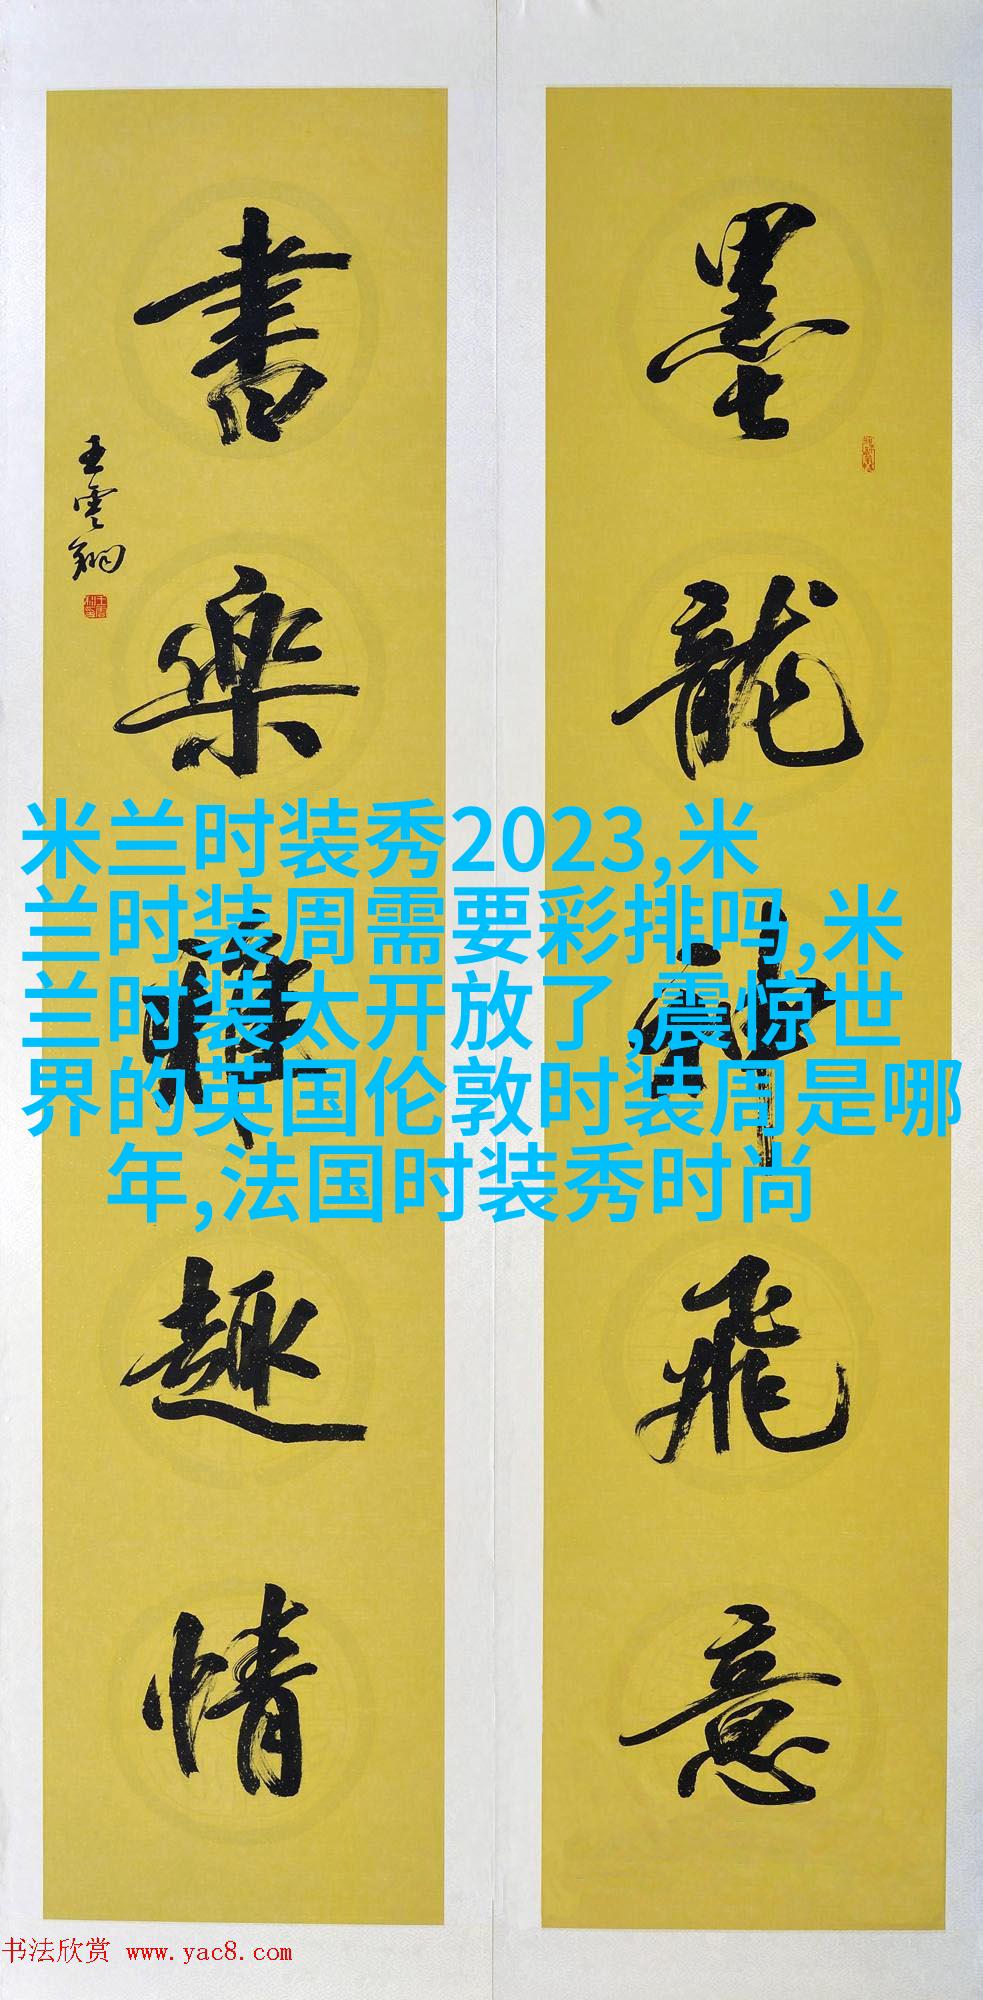 墨龍神飛意
書樂趣情
王雲翔
米兰时装秀2023,米
兰时装周需要彩排吗,米
兰时装太开放了,震惊世
界的英国伦敦时装周是哪
年,法国时装秀时尚
书法欣赏 www.yac8.com